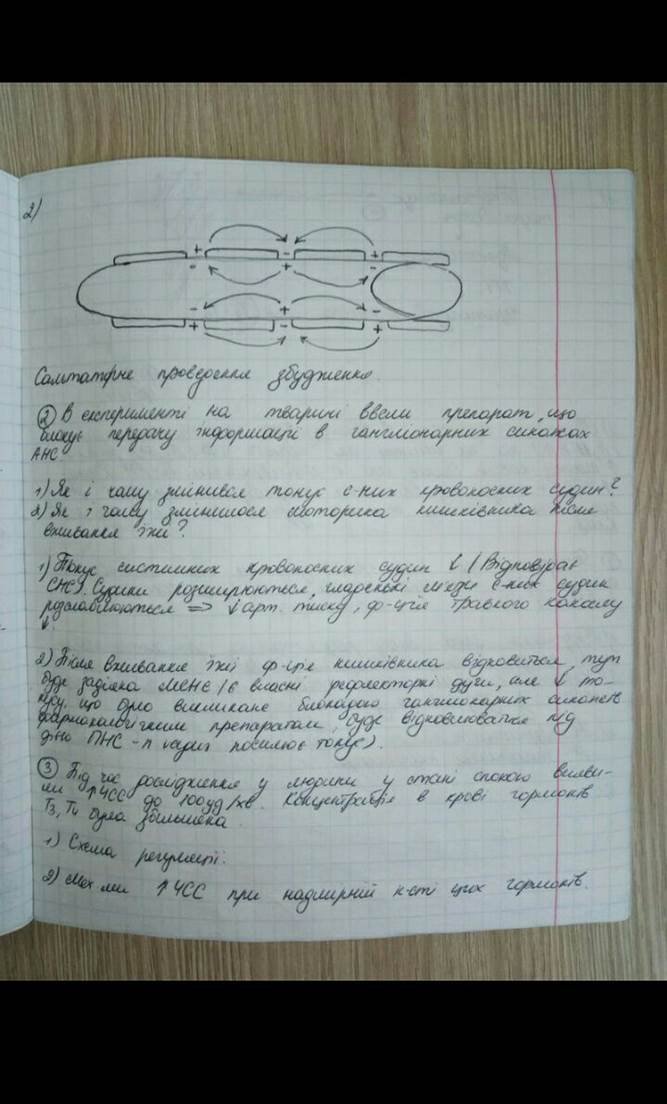 2)
+ - +
- + -
- + -
+ - +
Сальтаторне проведення збудження.
② В експерименті на тварині ввели препарат, що
блокує передачу інформації в гангліонарних синапсах
АНС.
1) Як і чому змінився тонус с-них кровоносних судин?
2) Як і чому змінилося моторика кишківника після
вживання їжі?
1) Тонус системних кровоносних судин ↓ (Відповідає
СНС). Судини розширюються, гладенькі м'язи с-них судин
розслаблюються => ↓ арт. тиску, ф-ція травного каналу
↓.
2) Після вживання їжі ф-ція кишківника відновиться, тут
буде задіяна МСНС (є власні рефлекторні дуги, але ↓ то-
нусу, що було викликане блокадою гангліонарних синапсів
фармакологічним препаратом, буде відновлюватися під
дією ПНС - n. vagus посилює тонус).
③ Під час дослідження у людини у стані спокою вияви-
ли ↑ ЧСС до 100 уд/хв. Концентрація в крові гормонів
Т3, Т4 була збільшена.
1) Схема регуляції.
2) Мех-ми ↑ ЧСС при надмірній к-сті цих гормонів.